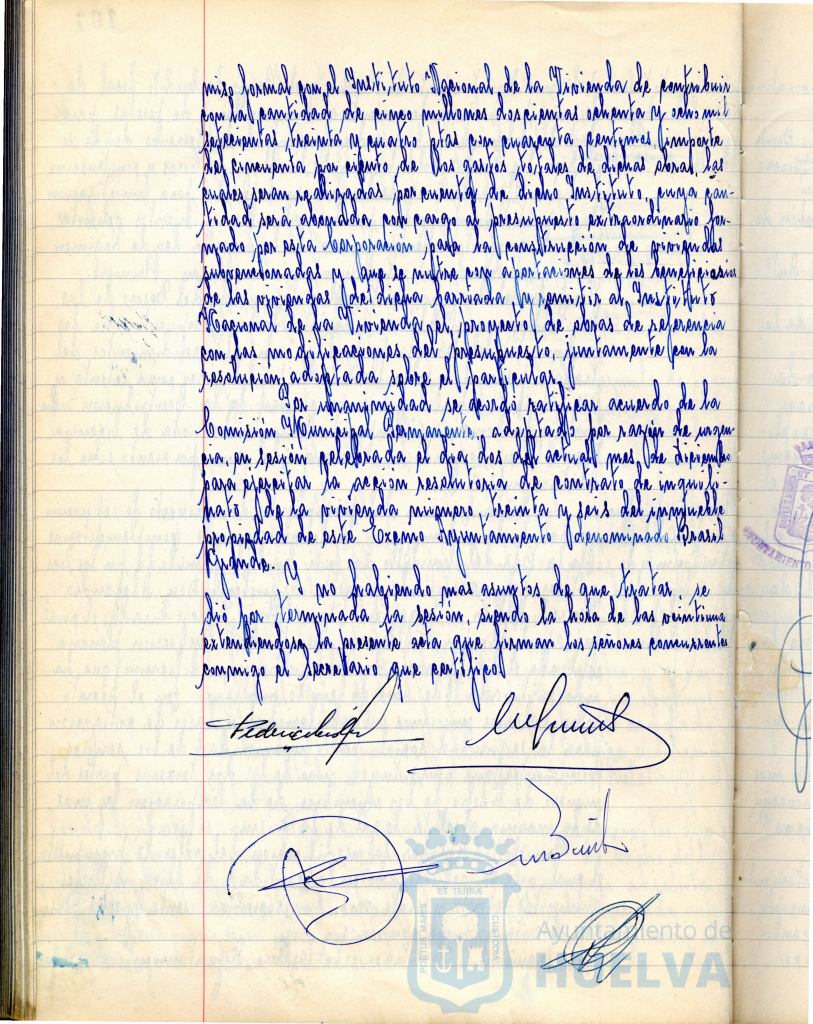 miso formal con el Instituto Nacional de la Vivienda de contribuir
con la cantidad de cinco millones doscientas ochenta y ocho mil
setecientas treinta y cuatro ptas con cuarenta centimos, importe
del cincuenta por ciento de los gastos totales de dichas obras, las
cuales seran realizadas por cuenta de dicho Instituto, cuya can-
tidad será abonada con cargo al presupuesto extraordinario for-
mado por esta Corporación para la construcción de viviendas
subvencionadas y que se nutre con aportaciones de los beneficiarios
de las viviendas de dicha barriada y remitir al Instituto
Nacional de la Vivienda el proyecto de obras de referencia
con las modificaciones del presupuesto, juntamente con la
resolucion adoptada sobre el particular.
Por unanimidad se acordó ratificar acuerdo de la
Comisión Municipal Permanente, adoptado por razón de urgen-
cia, en sesión celebrada el dia dos del actual mes de diciembre
para ejercitar la acción resolutoria de contrato de inquili-
nato de la vivienda número treinta y seis del inmueble
propiedad de este Excmo Ayuntamiento denominado Brasil
Grande.
Y no habiendo mas asuntos de que tratar, se
dió por terminada la sesión, siendo la hora de las veintiuna
extendiendose la presente acta que firman los señores concurrentes
conmigo el Secretario que certifico.
PORTUS MARIS ET TERRÆ CUSTODIA
Ayuntamiento de
HUELVA